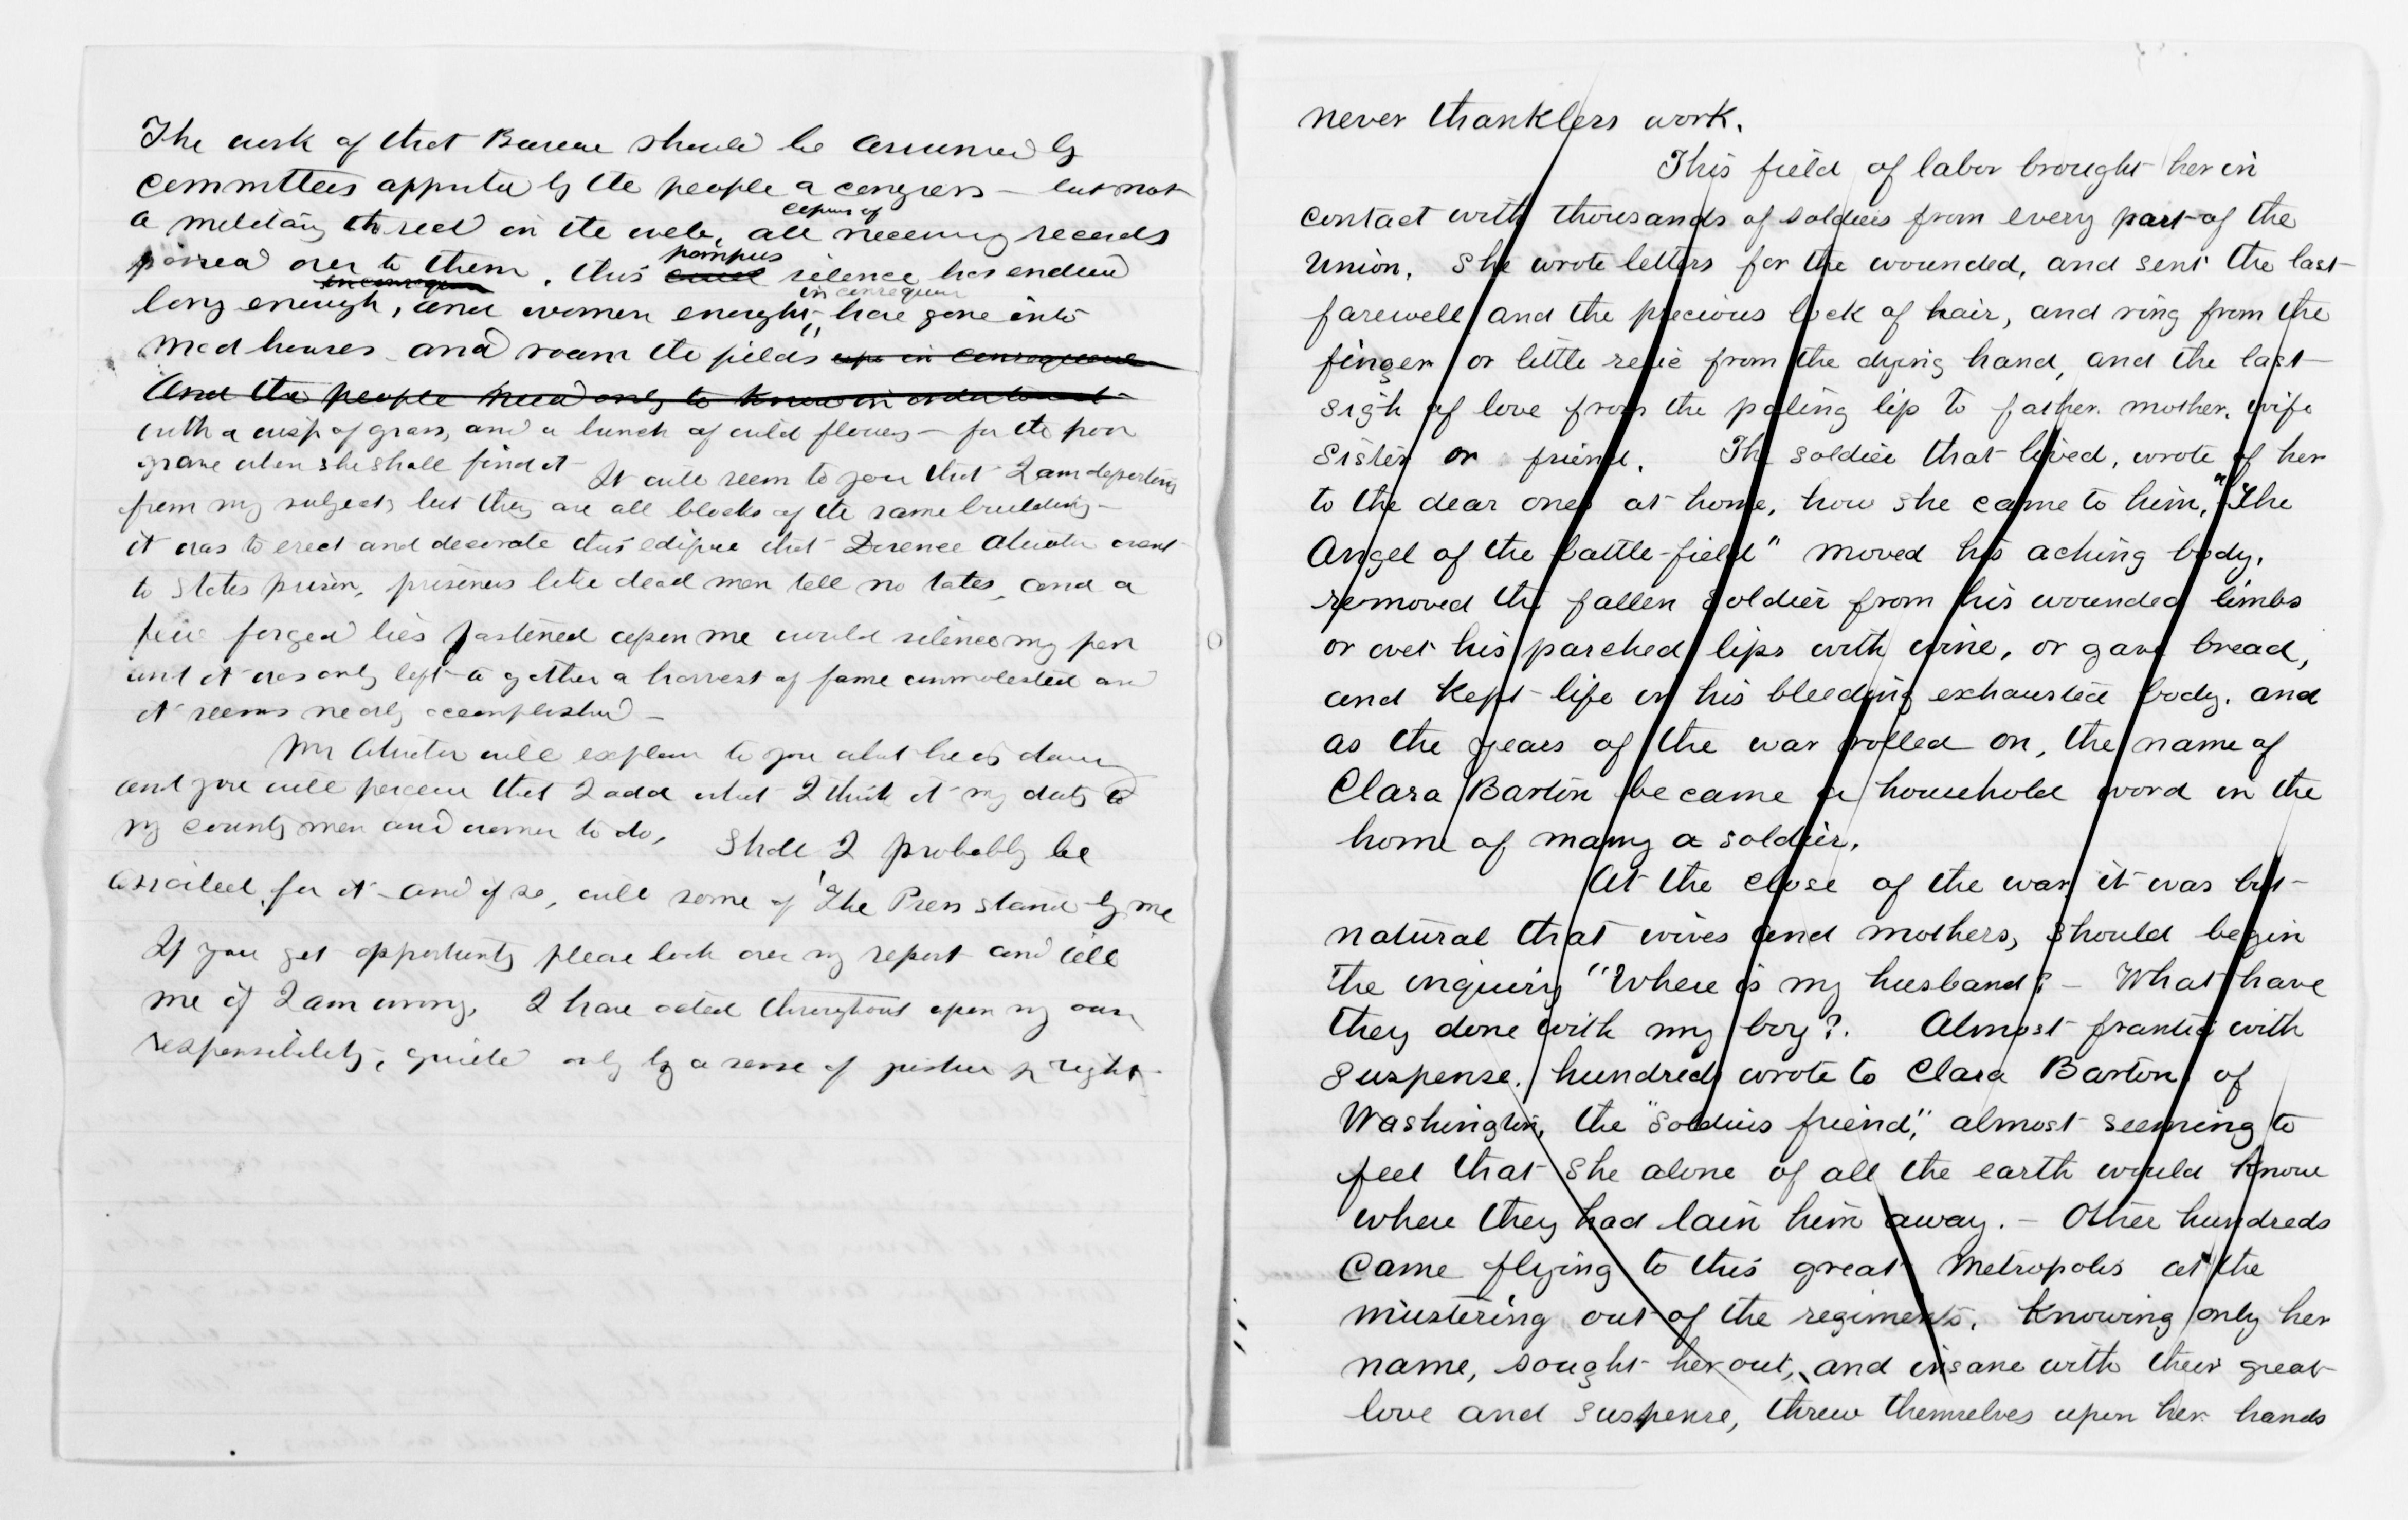 The work of that Bureau should be assumed by
committees appointed by the people or congress — but not
a military thread in the web,
copies of
all necessary records
passed over to them. this
pompus
cruel silence has endured
in consequence
long enough, and women enough,
in consequence
have gone into
mad houses and roam the fields in consequence
And the people need only to know in order to
with a wisp of grass, and a bunch of wild flowers — for the poor
grave when she shall find it
It will seem to you that I am departing
from my subject, but they are all blocks of the same building —
it was to erect and decorate this edifice that Dorence Atwater went
to States prison, prisoners like dead men tell no tales, and a
few forged lies fastened upon me would silence my pen
and it was only left to gather a harvest of fame unmolested and
it seems nearly accomplished —
Mr Atwater will explain to you what he is doing
and you will perceive that I add what I think it my duty to
my country men and women to do,
Shall I probably be
assailed for it — and if so, will some of "The Press stand by me
If you get opportunity please look over my report and tell
me if I am wrong. I have acted throughout upon my own
responsibility, guided only by a sense of justice & right.
never thankless work.
This field of labor brought her in
contact with thousands of soldiers from every part of the
Union. She wrote letters for the wounded, and sent the last
farewell and the precious lock of hair, and ring from the
finger or little relic from the dying hand, and the last
sigh of love from the paling lip to father. mother. wife
sister or friend. The soldier that lived, wrote of her
to the dear ones at home, how she came to him, "The
Angel of the battle-field" moved his aching body.
removed the fallen soldier from his wounded limbs
or wet his parched lips with wine, or gave bread,
and kept life in his bleeding exhausted body. and
as the years of the war rolled on, the name of
Clara Barton became a household word in the
home of many a soldier.
At the close of the war it was but
natural that wives and mothers, should begin
the inquiry "Where is my husband? — What have
they done with my boy?. Almost frantic with
suspense. hundreds wrote to Clara Barton. of
Washington, the "Soldiers friend," almost seeming to
feel that she alone of all the earth would know
where they had lain him away. — Other hundreds
came flying to this great Metropolis at the
mustering out of the regiments. Knowing only her
name, sought her out, and insane with their great
love and suspense, threw themselves upon her hands